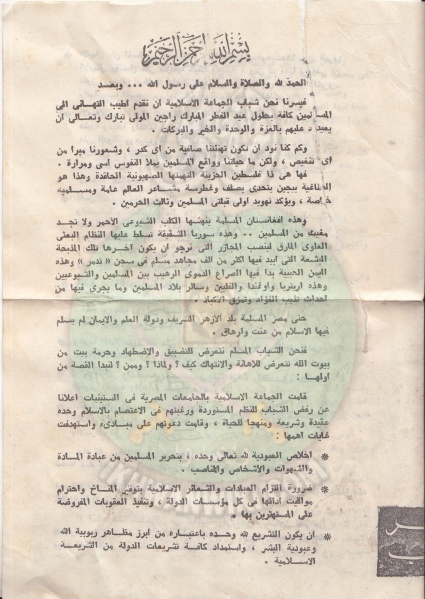 بسم الله الرحمن الرحيم
الحمد لله والصلاة والسلام على رسول الله ... وبعد
فيسرنا نحن شباب الجماعة الاسلامية ان نقدم اطيب التهاني الى
المسلمين كافة بحلول عيد الفطر المبارك راجين المولى تبارك وتعالى ان
يعيده عليهم بالعزة والوحدة والخير والبركات .
وكم كنا نود ان تكون تهنئتنا صافية من اى كدر ، وشعورنا مبرا من
اى تنغيص ، ولكن ما حياتنا وواقع المسلمين يملا النفوس اسى ومرارة .
فها هى ذا فلسطين الحزينة التهمتها الصهيونية الحاقدة وهذا هو
الطاغية بيجين يتحدى بصلف وغطرسة مشاعر العالم عامة ومسلميه
خاصة ، يؤكد تهويد اولى قبلتى المسلمين وثالث الحرمين .
وهذه افغانستان المسلمة ينهشها الكلب الشيوعى الاحمر ولا تجد
مغيث من المسلمين .. وهذه سوريا الشقيقة تسلط عليها النظام البعثى
العلوى المارق لينصب المجازر التى نرجو ان يكون آخرها تلك المذبحة
البشعة التى ابيد فيها اكثر من الف مجاهد مسلم فى سجن « تدمر » وهذه
اليمن الحبيبة بدا فيها الصراع الدموى الرهيب بين المسلمين والشيوعيين
وهذه اريتريا واوغندا والفلبين وسائر بلاد المسلمين وما يجرى فيها من
احداث تذيب الفؤاد وتمزق الاكباد .
حتى مصر المسلمة بلد الازهر الشريف ودولة العلم والايمان لم يسلم
فيها الاسلام من عنت وارهاق .
فنحن الشباب المسلم نتعرض للتضييق والاضطهاد وحرمة بيت من
بيوت الله تتعرض للاهانة والانتهاك كيف ؟ ولماذا ؟ ومن ؟ لنبدا القصة من
اولها :
قامت الجماعة الاسلامية بالجامعات المصرية فى السبعينات اعلانا
عن رفض الشباب للنظم المستوردة ورغبتهم فى الاعتصام بالاسلام وحده
عقيدة وشريعة ومنهجا للحياة ، وقامت دعوتهم على مبادىء واستهدفت
غايات اهمها :
* اخلاص العبودية لله تعالى وحده ، بتحرير المسلمين من عبادة المادة
والشهوات والاشخاص والمناصب .
* ضرورة التزام العبادات والشعائر الاسلامية بتوفير المناخ واحترام
مواقيت ادائها فى كل مؤسسات الدولة ، وتنفيذ العقوبات المفروضة
على المستهترين بها .
* ان يكون التشريع لله وحده باعتباره من ابرز مظاهر ربوبية الله
وعبودية البشر ، واستمداد كافة تشريعات الدولة من الشريعة
الاسلامية .